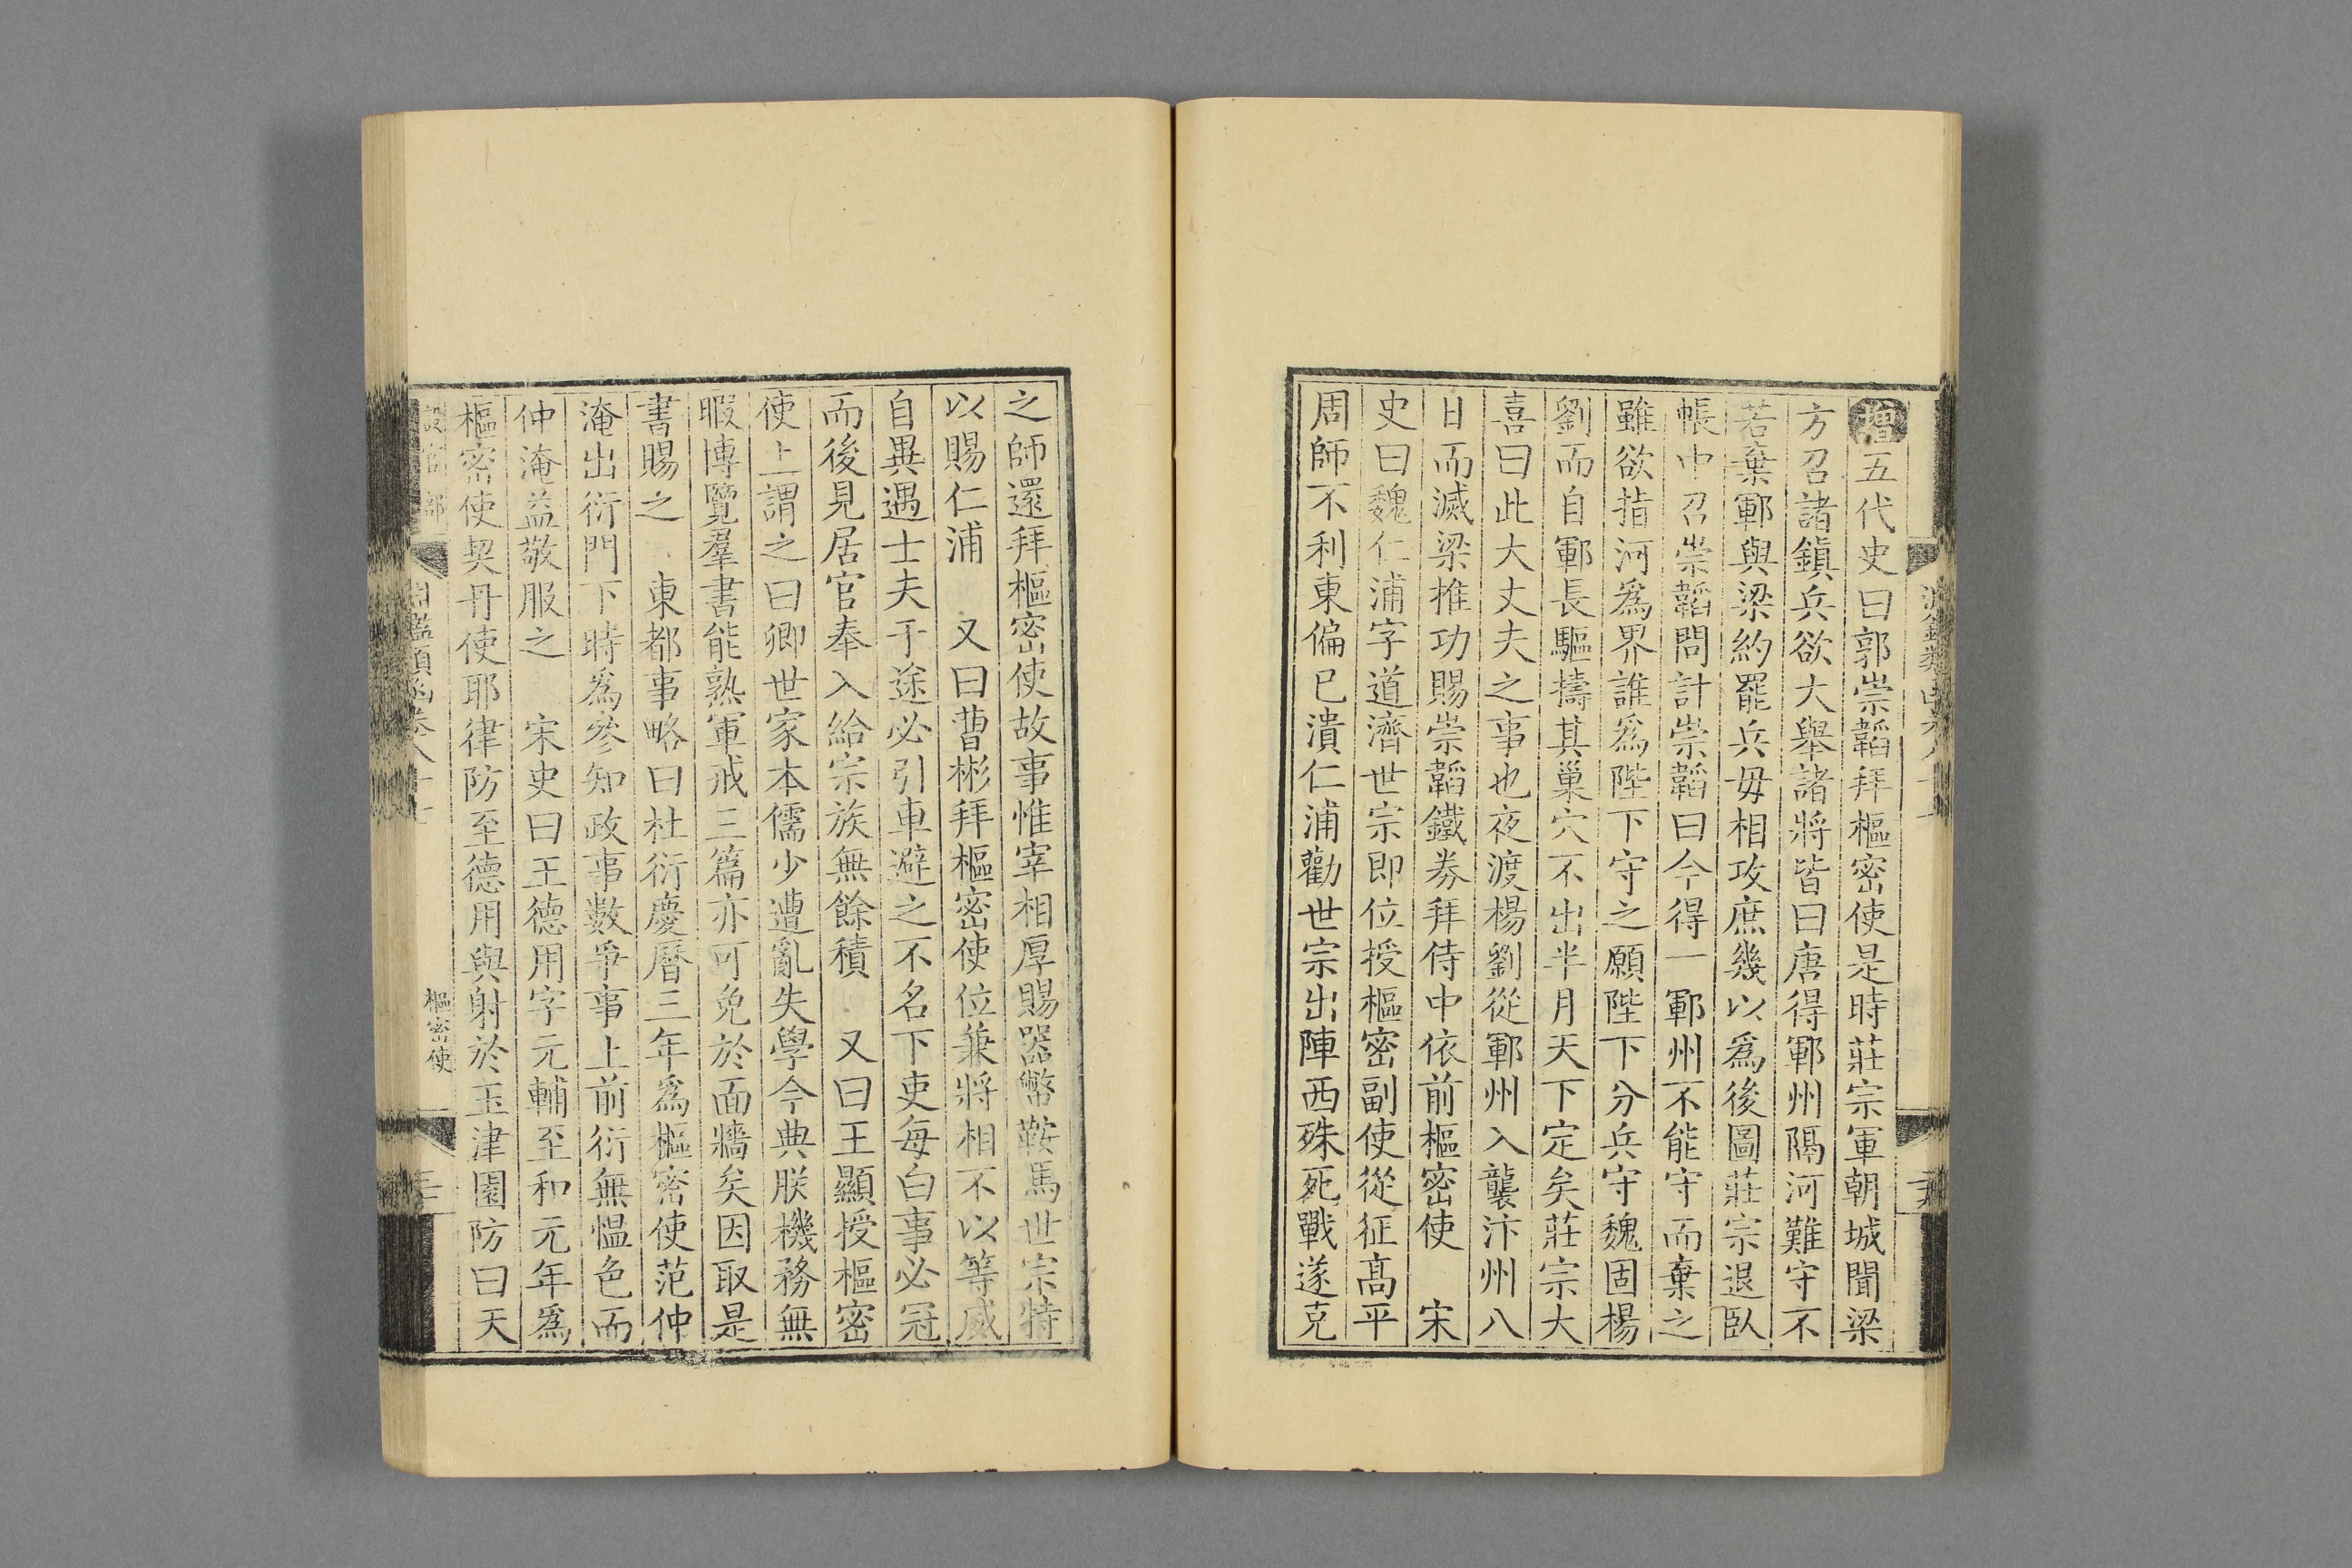 增五代史曰郭崇韜拜樞密使是時莊宗軍朝城聞梁
方召諸鎮兵欲大舉諸將皆曰唐得鄆州隔河難守不
若棄鄆與梁約罷兵毋相攻庶幾以爲後圖莊宗退臥
帳中召崇韜問計崇韜曰今得一鄆州不能守而棄之
雖欲指河爲界誰爲陛下守之願陛下分兵守魏固楊
劉而自鄆長驅擣其巢穴不出半月天下定矣莊宗大
喜曰此大丈夫之事也夜渡楊劉從鄆州入襲汴州八
日而滅梁推功賜崇韜鐵券拜侍中依前樞密使　宋
史曰魏仁浦字道濟世宗即位授樞密副使從征高平
周師不利東偏已潰仁浦勸世宗出陣西殊死戰遂克
之師還拜樞密使故事惟宰相厚賜器幣鞍馬世宗特
以賜仁浦　又曰曹彬拜樞密使位兼將相不以等威
自異遇士夫于途必引車避之不名下吏每白事必冠
而後見居官奉入給宗族無餘積　又曰王顯授樞密
使上謂之曰卿世家本儒少遭亂失學今典朕機務無
暇博覽羣書能熟軍戒三篇亦可免於面牆矣因取是
書賜之　東都事略曰杜衍慶曆三年爲樞密使范仲
淹出衍門下時爲參知政事數爭事上前衍無慍色而
仲淹益敬服之　宋史曰王德用字元輔至和元年爲
樞密使契丹使耶律防至德用與射於玉津園防曰天
設官部　淵鑑類函卷八十　樞密使